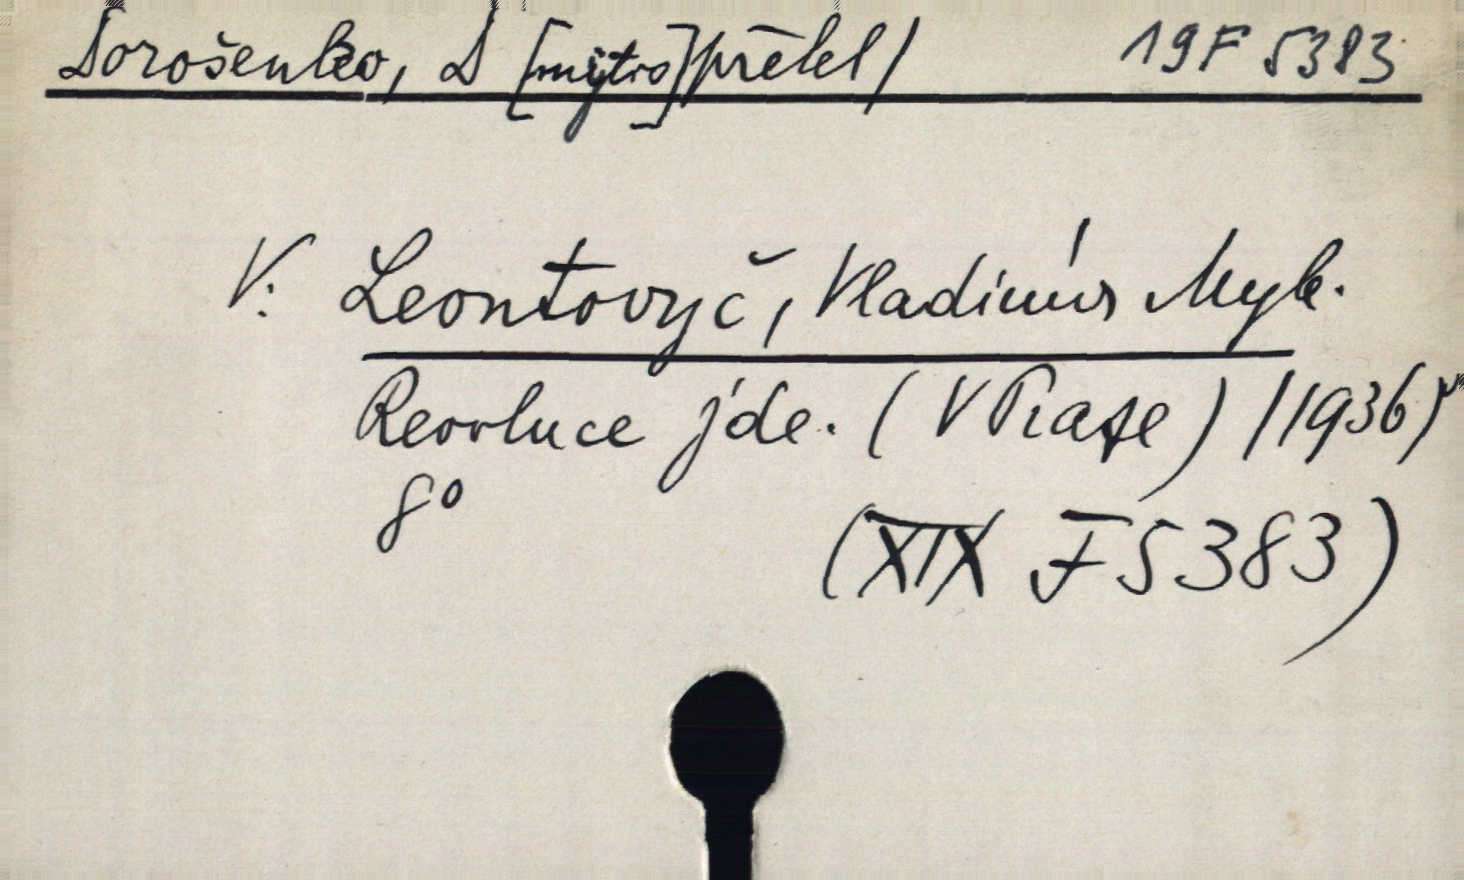 Dorošenko, D [mytro] přelel/ 19F 5383
V: Leontovyč, Vladimír Myk.
Revoluce jde. (V Praze) /1936/
8°
(XIX F 5383)